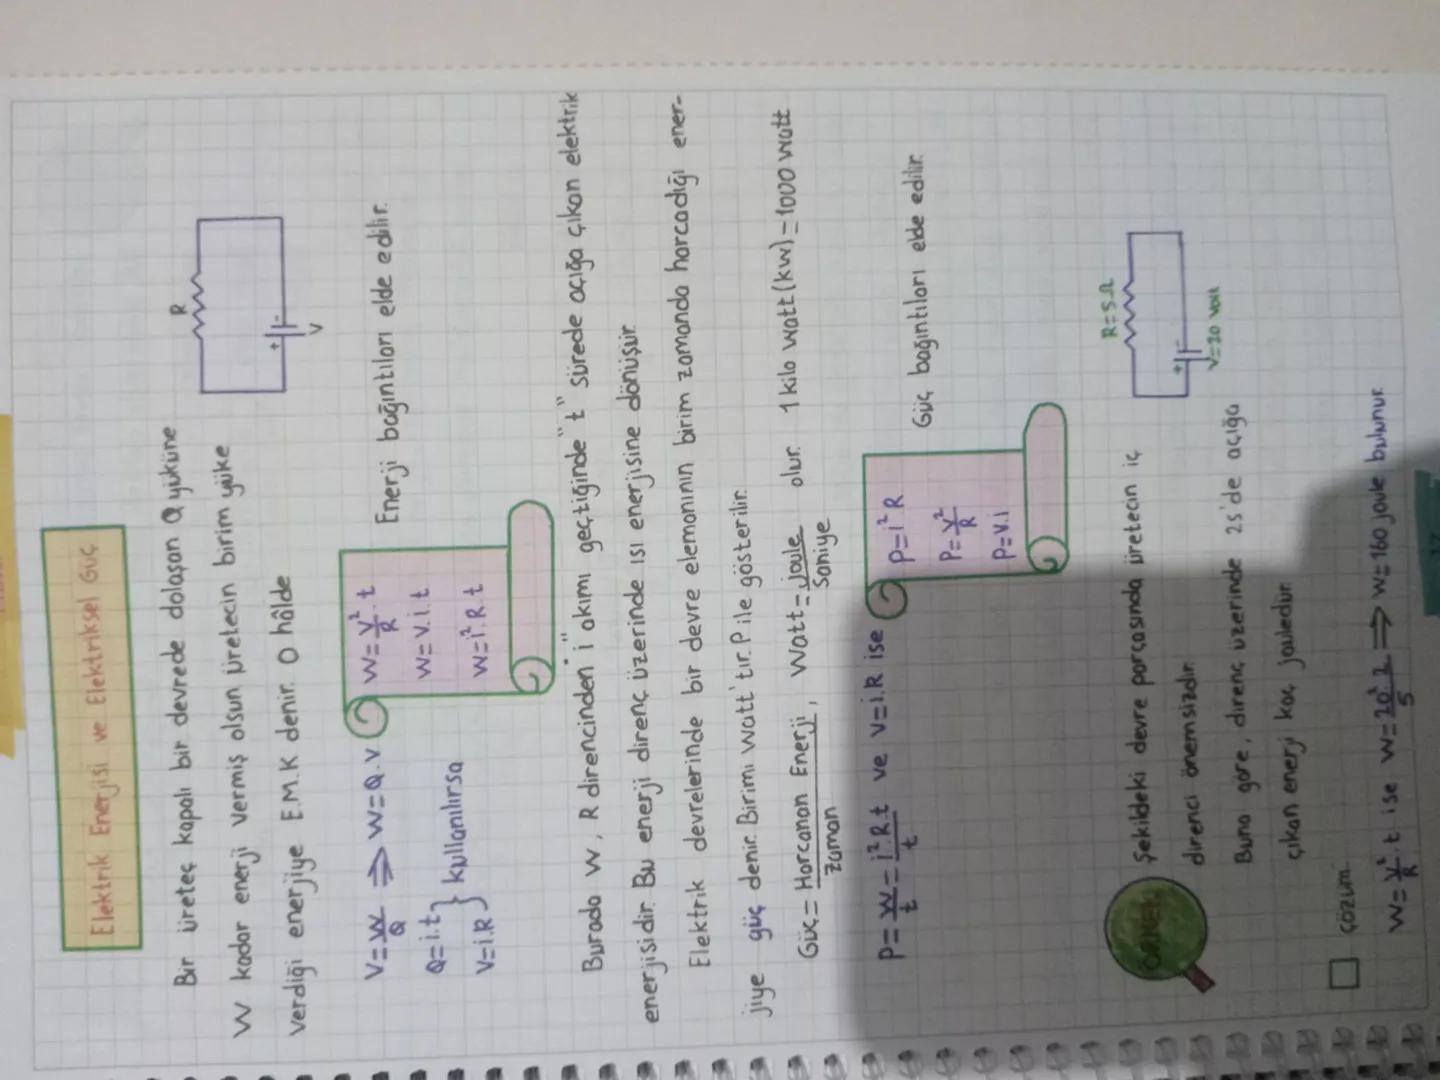 Elektrik Enerjisi ve Elektriksel Güç
Bir üreteç kapalı bir devrede dolaşan Q yüküne
W kadar enerji vermiş olsun üretecin birim yüke
verdiği enerjiye E.M.K denir. O hâlde
R
+ -
V
V=W/Q ⇒ W=Q.V
Q=i.t
V=i.R } kullanılırsa
W=V²/R.t
W=V.i.t
W=i².R.t
Enerji bağıntıları elde edilir.
Burada W, R direncinden "i" akımı geçtiğinde "t" sürede açığa çıkan elektrik
enerjisidir. Bu enerji direnç üzerinde ısı enerjisine dönüşür
Elektrik devrelerinde bir devre elemanının birim zamanda harcadığı ener-
jiye güç denir. Birimi watt'tır. P ile gösterilir.
Güç=Harcanan Enerji/Zaman, Watt=Joule/Saniye olur. 1 kilo watt(kw)=1000 watt
P=W/t=i².R.t/t ve V=i.R ise
P=i²R
P=V²/R
P=V.i
Güç bağıntıları elde edilir.
ÖRNEK
Şekildeki devre parçasında üretecin iç
direnci önemsizdir.
Buna göre, direnç üzerinde 2s'de açığa
çıkan enerji kaç jouledur
R=5Ω
+ -
V=20 Volt
çözüm
W=V²/R.t ise W=20².2/5 ⇒ W=160 joule bulunur.